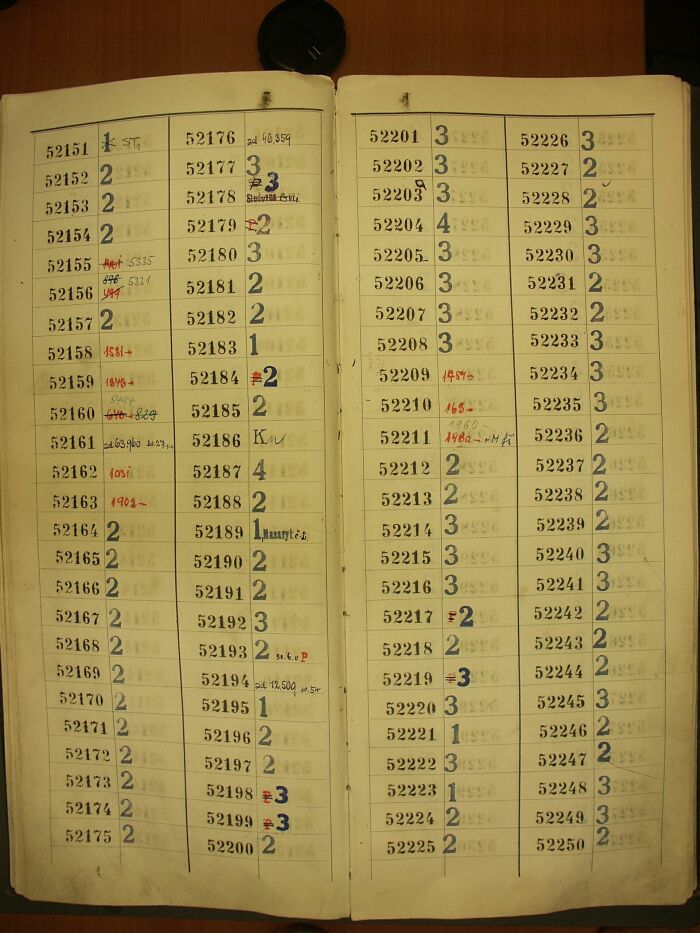 52151 1 ST,
52152 2
53153 2
52154 2
52155 5335
52156 898 5331
52157 2
52158 1531-
52159 1848-
52160 5494 829
52161 ad 63,960
52162 1031
52163 1902-
52164 2
52165 2
52166 2
52167 2
52168 2
52169 2
52170 2
52171 2
52172 2
52173 2
52174 2
52175 2
52176 ad 46,359
52177 3
52178 3
52179 2
52180 3
52181 2
52182 2
52183 1
52184 P 2
52185 2
52186 K
52187 4
52188 2
52189 1, Masaryk č.2.
52190 2
52191 2
52192 3
52193 2 P
52194 ad 12,509
52195 1
52196 2
52197 2
52198 P 3
52199 P 3
52200 2
52201 3
52202 3
52203 3
52204 4
52205 3
52206 3
52207 3
52208 3
52209
52210 168-
52211 1960 1480-
52212 2
52213 2
52214 3
52215 3
52216 3
52217 P 2
52218 2
52219 P 3
52220 3
52221 1
52222 3
52223 1
52224 2
52225 2
52226 3
52227 2
52228 2
52229 3
52230 3
52231 2
52232 2
52233 3
52234 3
52235 3
52236 2
52237 2
52238 2
52239 2
52240 3
52241 3
52242 2
52243 2
52244 2
52245 3
52246 2
52247 2
52248 3
52249 3
52250 2